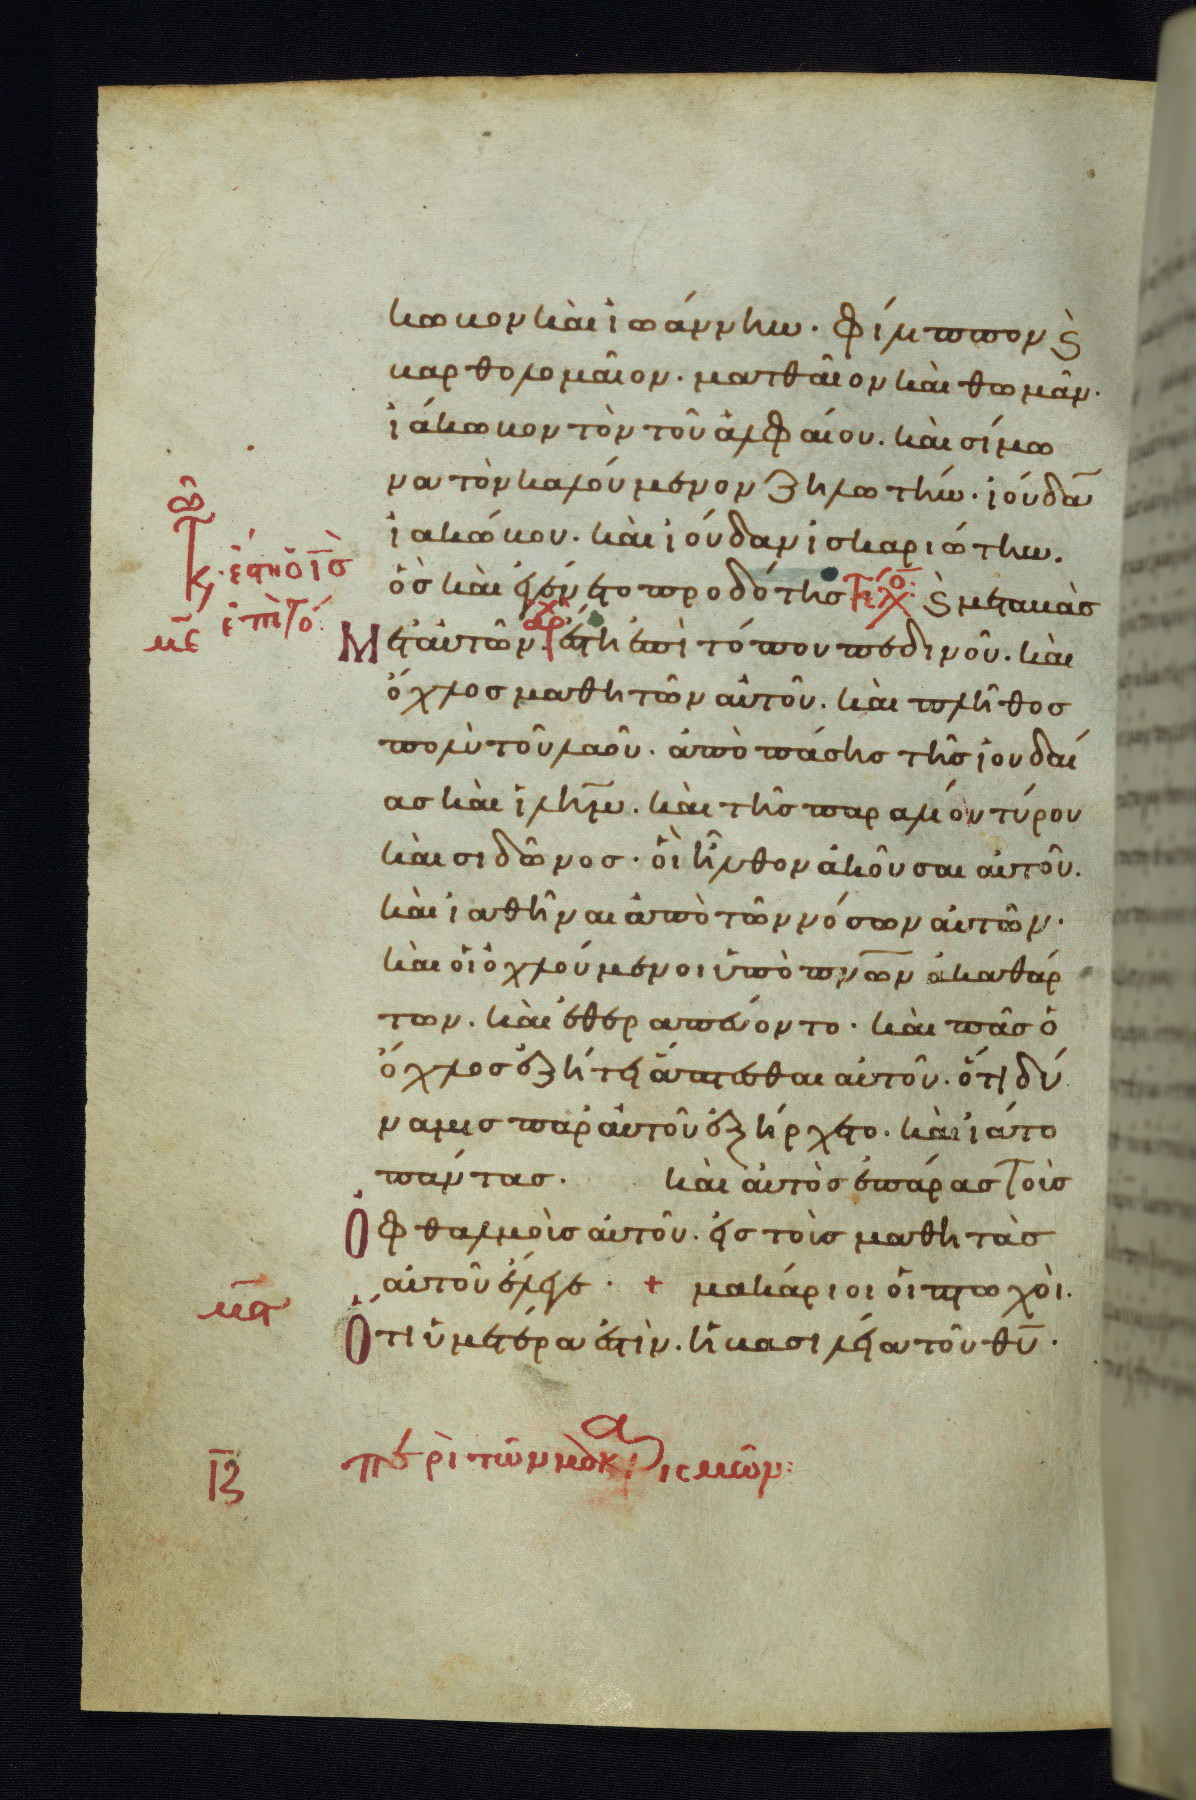 κωβον καὶ ἰωάννην. φίλιππον ϗ
βαρθολομαῖον. ματθαῖον καὶ θωμᾶν.
ἰάκωβον τὸν τοῦ ἀλφαίου. καὶ σίμω
να τὸν καλούμενον ζηλωτήν. ἰούδα
ἰακώβου. καὶ ἰούδαν ἰσκαριώτην.
ὃς καὶ ἐγένετο προδότης ϗ καταβὰς
με
Μετ αὐτῶν ἔστη ἐπὶ τόπου πεδινοῦ. καὶ
ὄχλος μαθητῶν αὐτοῦ. καὶ πλῆθος
πολὺ τοῦ λαοῦ. ἀπὸ πάσης τῆς ἰουδαί
ας καὶ ἰλῆμ. καὶ τῆς παραλίου τύρου
καὶ σιδῶνος. οἳ ἦλθον ἀκοῦσαι αὐτοῦ.
καὶ ἰαθῆναι ἀπὸ τῶν νόσων αὐτῶν.
καὶ οἱ ὀχλούμενοι ὑπὸ πνῶν ἀκαθάρ
των. καὶ ἐθεραπεύοντο. καὶ πᾶς ὁ
ὄχλος ἐζήτει ἅπτεσθαι αὐτοῦ. ὅτι δύ
ναμις παρ αὐτοῦ ἐξήρχετο. καὶ ἰᾶτο
πάντας. καὶ αὐτὸς ἐπάρας τοὺς
Ὀφθαλμοὺς αὐτοῦ. εἰς τοὺς μαθητὰς
αὐτοῦ ἔλεγε. + μακάριοι οἱ πτωχοὶ.
Ὅτι ὑμετέρα ἐστὶν. ἡ βασιλεία τοῦ θῦ.
περὶ τῶν μακαρισμῶν: